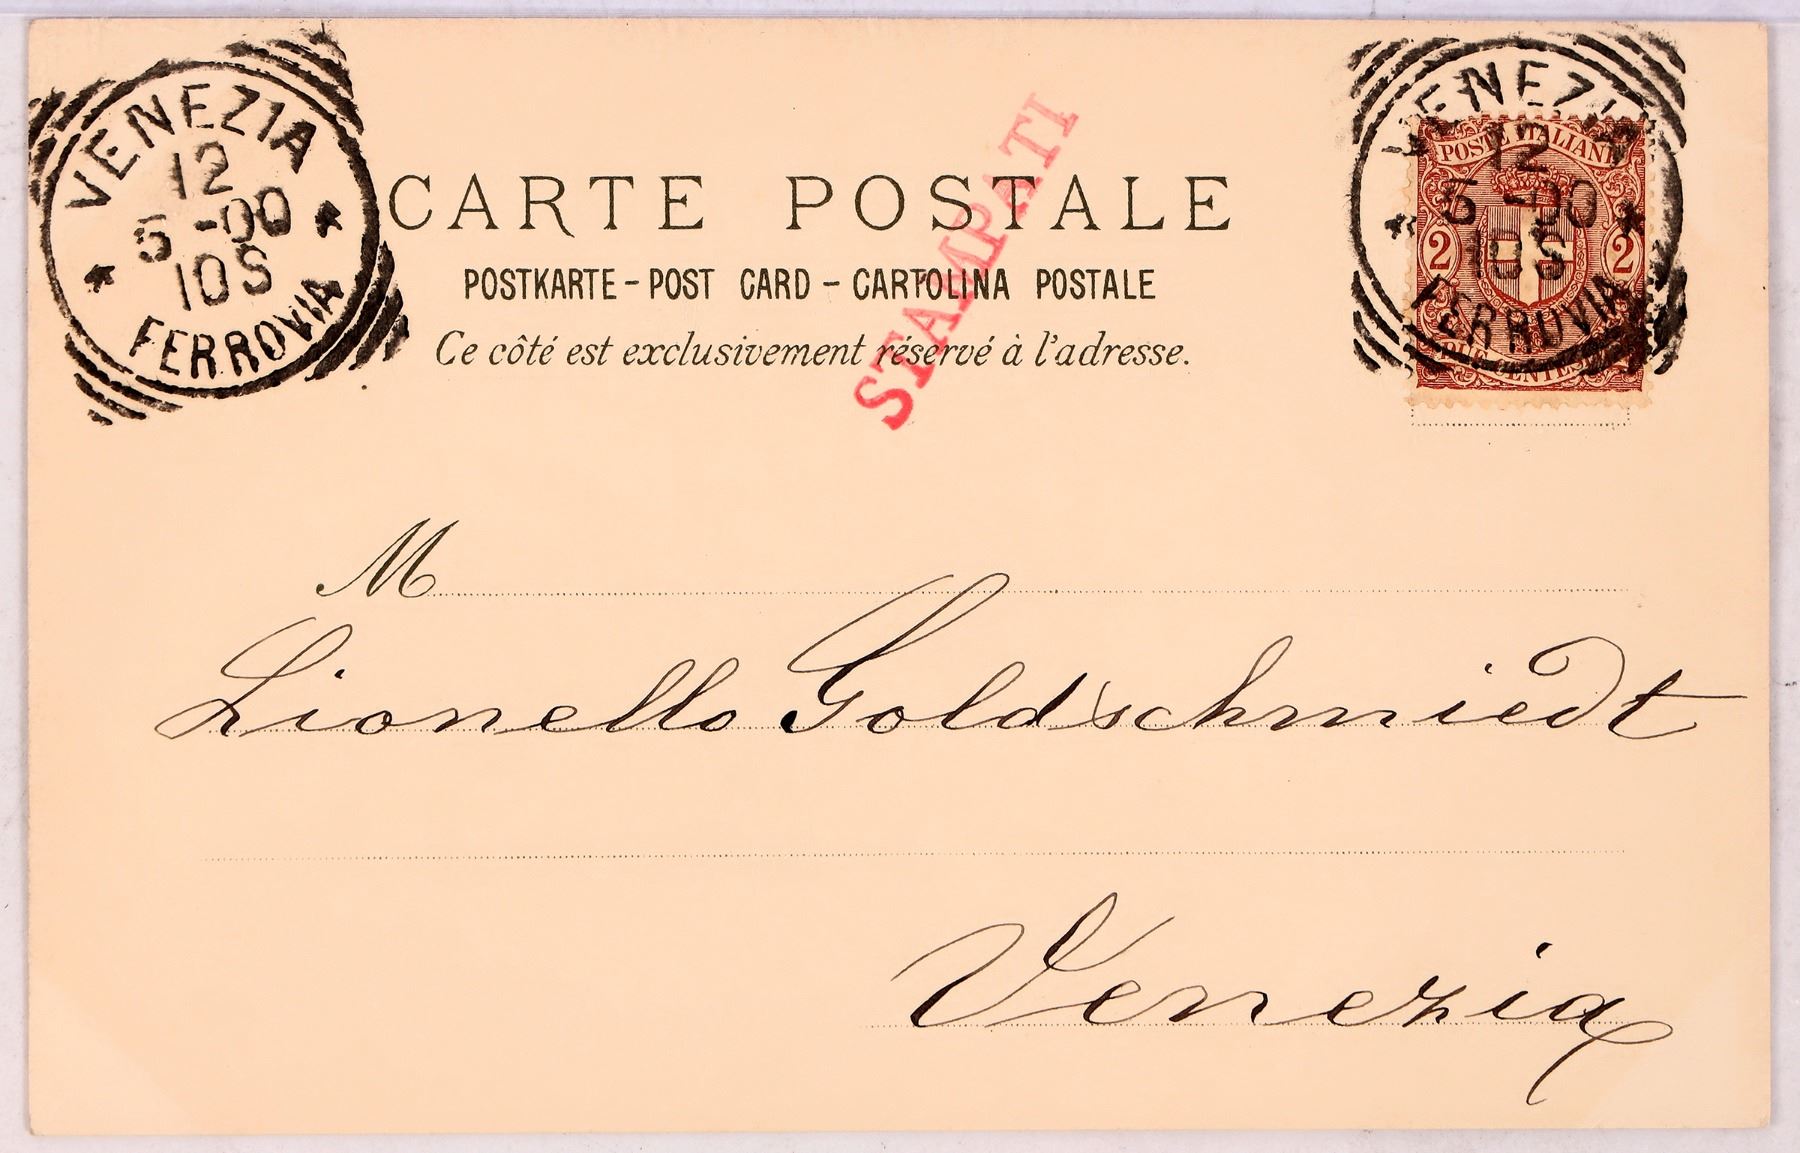 VENEZIA
12
5 -00
10S
* *
FERROVIA
CARTE POSTALE
STAMPATI
POSTKARTE - POST CARD - CARTOLINA POSTALE
Ce côté est exclusivement réservé à l'adresse.
VENEZIA
12
5 -00
10S
* *
FERROVIA
POSTE ITALIANE
2 2
DUE CENTESIMI
M
Lionello Goldschmiedt
Venezia